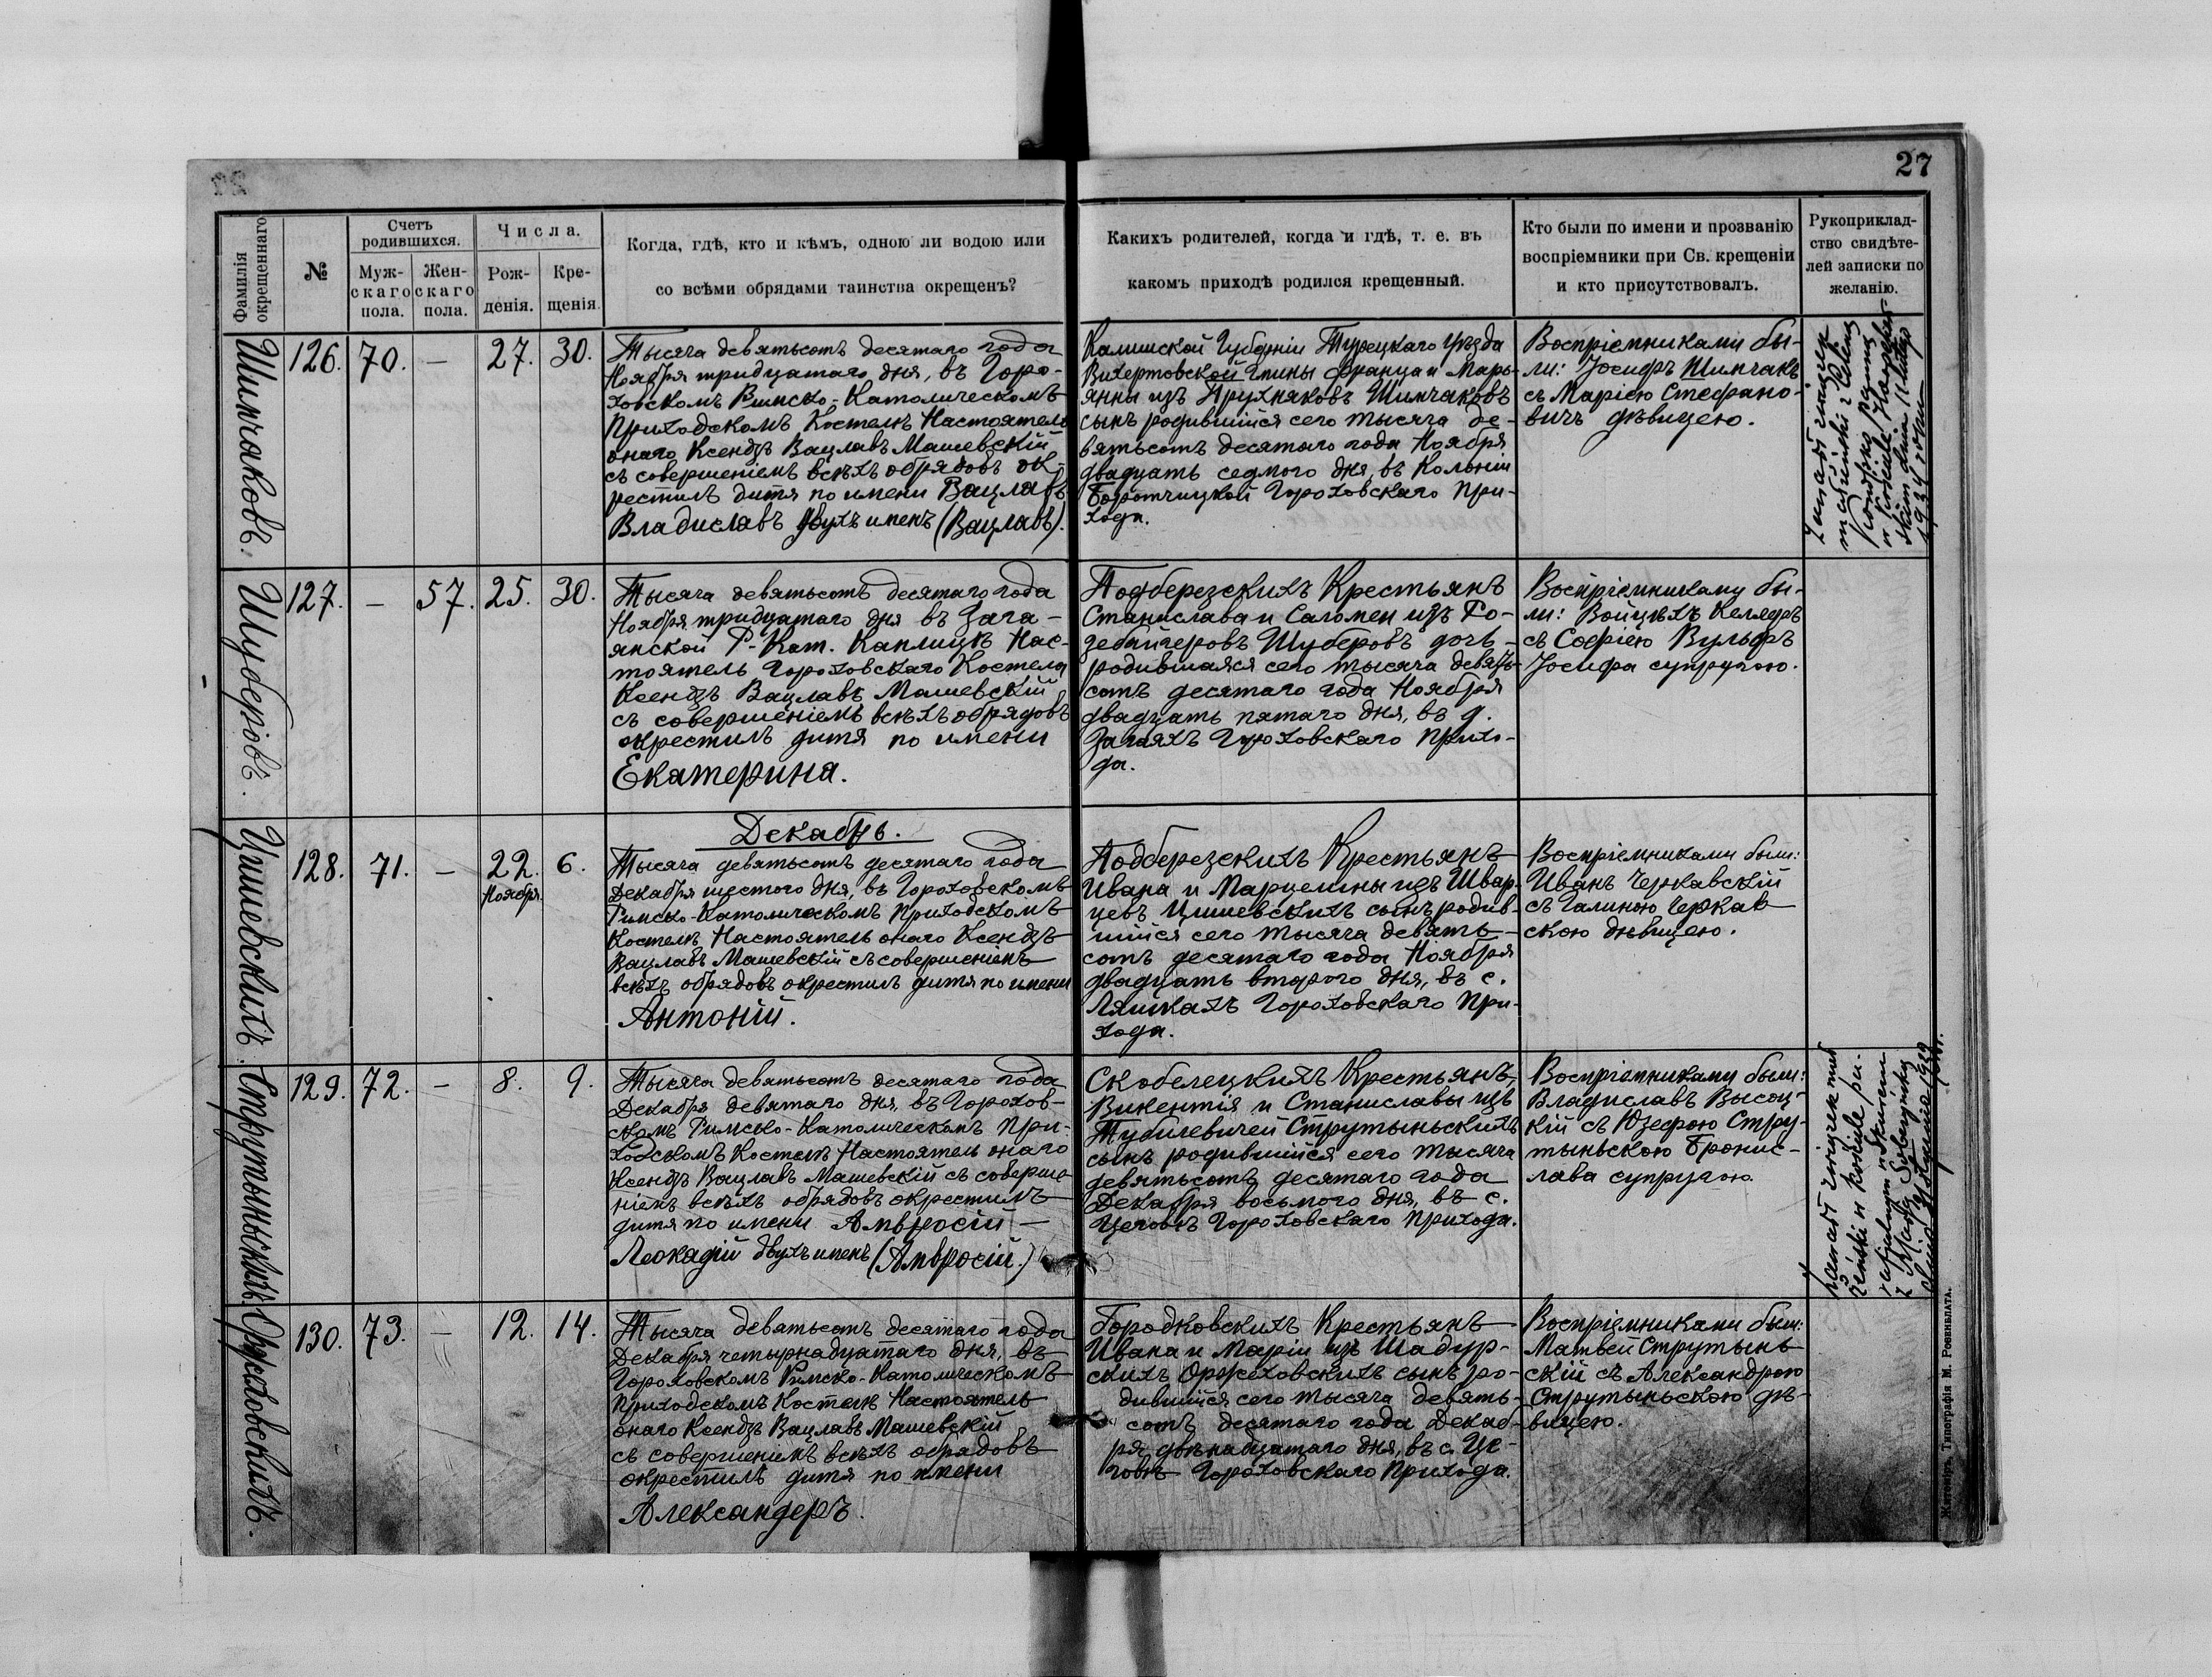 27
Фамилія окрещеннаго
№
Счетъ родившихся.
Муж-
скаго
пола.
Жен-
скаго
пола.
Числа.
Рож-
денія.
Кре-
щенія.
Когда, гдѣ, кто и кѣмъ, одною ли водою или
со всѣми обрядами таинства окрещенъ?
Какихъ родителей, когда и гдѣ, т. е. въ
какомъ приходѣ родился крещенный.
Кто были по имени и прозванію
воспріемники при Св. крещеніи
и кто присутствовалъ.
Рукоприклад-
ство свидѣте-
лей записки по
желанію.
Шимчаковъ.
126.
70.
—
27.
30.
Тысяча девятьсотъ десятаго года
Ноября тридцатаго дня, въ Горо-
ховскомъ Римско-Католическомъ
Приходскомъ Костелѣ Настоятель
онаго Ксендзъ Вацлавъ Машевскій
съ совершеніемъ всѣхъ обрядовъ ок-
рестилъ дитя по имени Вацлавъ
Владиславъ двухъ именъ (Вацлавъ).
Калишской Губерніи Турецкаго Уѣзда
Вихертовской Гмины Франца и Марь-
янны изъ Шимчаковъ
сынъ родившійся сего тысяча де-
вятьсотъ десятаго года Ноября
двадцать седмого дня, въ Колоніи
Боротчицкой Гороховскаго При-
хода.
Воспріемниками бы-
ли: Іосифъ Шимчакъ
съ Маріею Стефано-
вичъ дѣвицею.
zawarł związek
małżeński z
w kościele
dnia 11 lutego
1934 roku
Шуберовъ.
127.
—
57.
25.
30.
Тысяча девятьсотъ десятаго года
Ноября тридцатаго дня въ Зага-
янской Р-Кат. Каплицѣ Нас-
тоятель Гороховскаго Костела
Ксендзъ Вацлавъ Машевскій
съ совершеніемъ всѣхъ обрядовъ
окрестилъ дитя по имени
Екатерина.
Подберезскихъ Крестьянъ
Станислава и Саломеи изъ Ро-
Шуберовъ дочь
родившаяся сего тысяча девять-
сотъ десятаго года Ноября
двадцать пятаго дня, въ д.
Загаяхъ Гороховскаго Прихо-
да.
Воспріемниками бы-
ли: Войцѣхъ Келляръ
съ Софіею Вульфъ
Іосифа супругою.
Декабрь.
Цишевскихъ.
128.
71.
—
22.
Ноября
6.
Тысяча девятьсотъ десятаго года
Декабря шестого дня, въ Гороховскомъ
Римско-Католическомъ Приходскомъ
Костелѣ Настоятель онаго Ксендзъ
Вацлавъ Машевскій съ совершеніемъ
всѣхъ обрядовъ окрестилъ дитя по имени
Антоній.
Подберезскихъ Крестьянъ
Ивана и Марцелины изъ Швар-
цевъ Цишевскихъ сынъ родив-
шійся сего тысяча девять-
сотъ десятаго года Ноября
двадцать второго дня, въ с.
Ляшкахъ Гороховскаго При-
хода.
Воспріемниками были:
Иванъ Черкавскій
съ Галиною Черкав
скою дѣвицею.
Струтыньскихъ.
129.
72.
—
8.
9.
Тысяча девятьсотъ десятаго года
Декабря девятаго дня, въ Горохов-
скомъ Римско-Католическомъ При-
ходскомъ Костелѣ Настоятель онаго
Ксендзъ Вацлавъ Машевскій съ соверше-
ніемъ всѣхъ обрядовъ окрестилъ
дитя по имени Амвросій —
Леокадій двухъ именъ (Амвросій.)
Скобелецкихъ Крестьянъ,
Викентія и Станиславы изъ
Тубилевичей Струтыньскихъ
сынъ родившійся сего тысяча
девятьсотъ десятаго года
Декабря восьмого дня, въ с.
Цеговѣ Гороховскаго Прихода.
Воспріемниками были:
Владиславъ Высоц-
кій съ Юзефою Стру-
тыньскою Бронис-
лава супругою.
zawarł związek mał-
żeński w kościele pa-
rafialnym w
z
dnia
Оржеховскихъ.
130.
73.
—
12.
14.
Тысяча девятьсотъ десятаго года
Декабря четырнадцатаго дня, въ
Гороховскомъ Римско-Католическомъ
Приходскомъ Костелѣ Настоятель
онаго Ксендзъ Вацлавъ Машевскій
съ совершеніемъ всѣхъ обрядовъ
окрестилъ дитя по имени
Александеръ.
Городковскихъ Крестьянъ
Ивана и Маріи изъ Шадур-
скихъ Оржеховскихъ сынъ ро-
дившійся сего тысяча девять-
сотъ десятаго года Декаб-
ря двѣнадцатаго дня, въ с. Це-
говѣ Гороховскаго Прихода.
Воспріемниками были:
Матвей Струтынь
скій съ Александрою
Струтыньскою дѣ-
вицею.
Житомiръ. Типографія М. Розенблата.